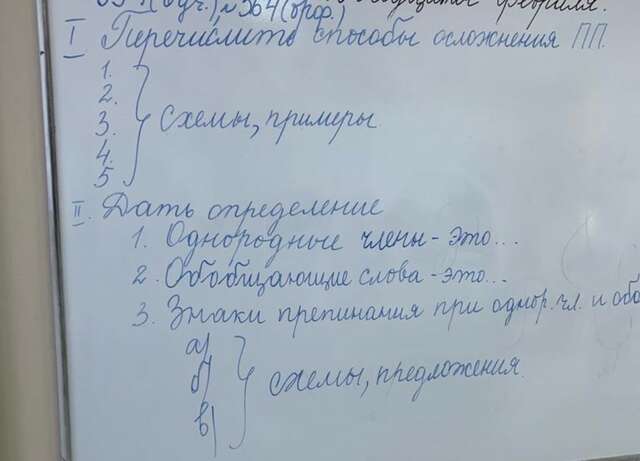 (буч.) № 364 (орф.) февраля.
I Перечислить способы осложнения ПП.
1.
2.
3. схемы, примеры.
4.
5
II. Дать определение
1. Однородные члены - это...
2. Обобщающие слова - это...
3. Знаки препинания при однор. чл. и обо
а)
б) схемы, предложения.
в)